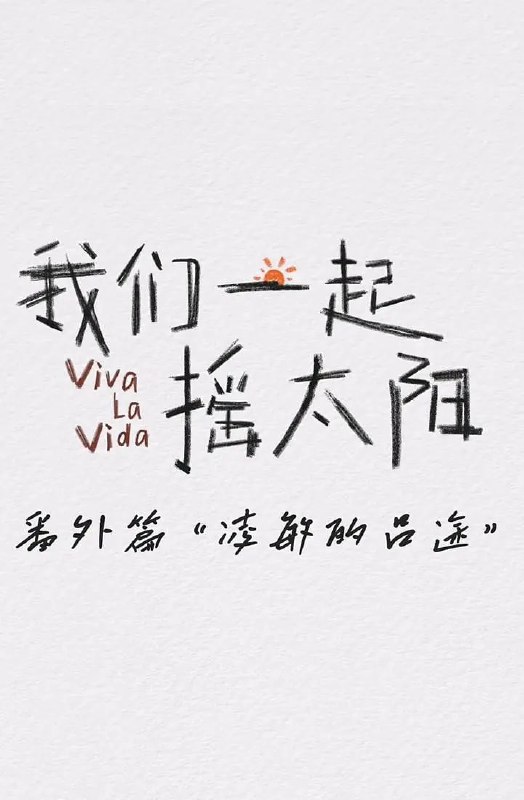 我们一起
摇太阳
Viva
La
Vida
番外篇“凌敏的吕途”